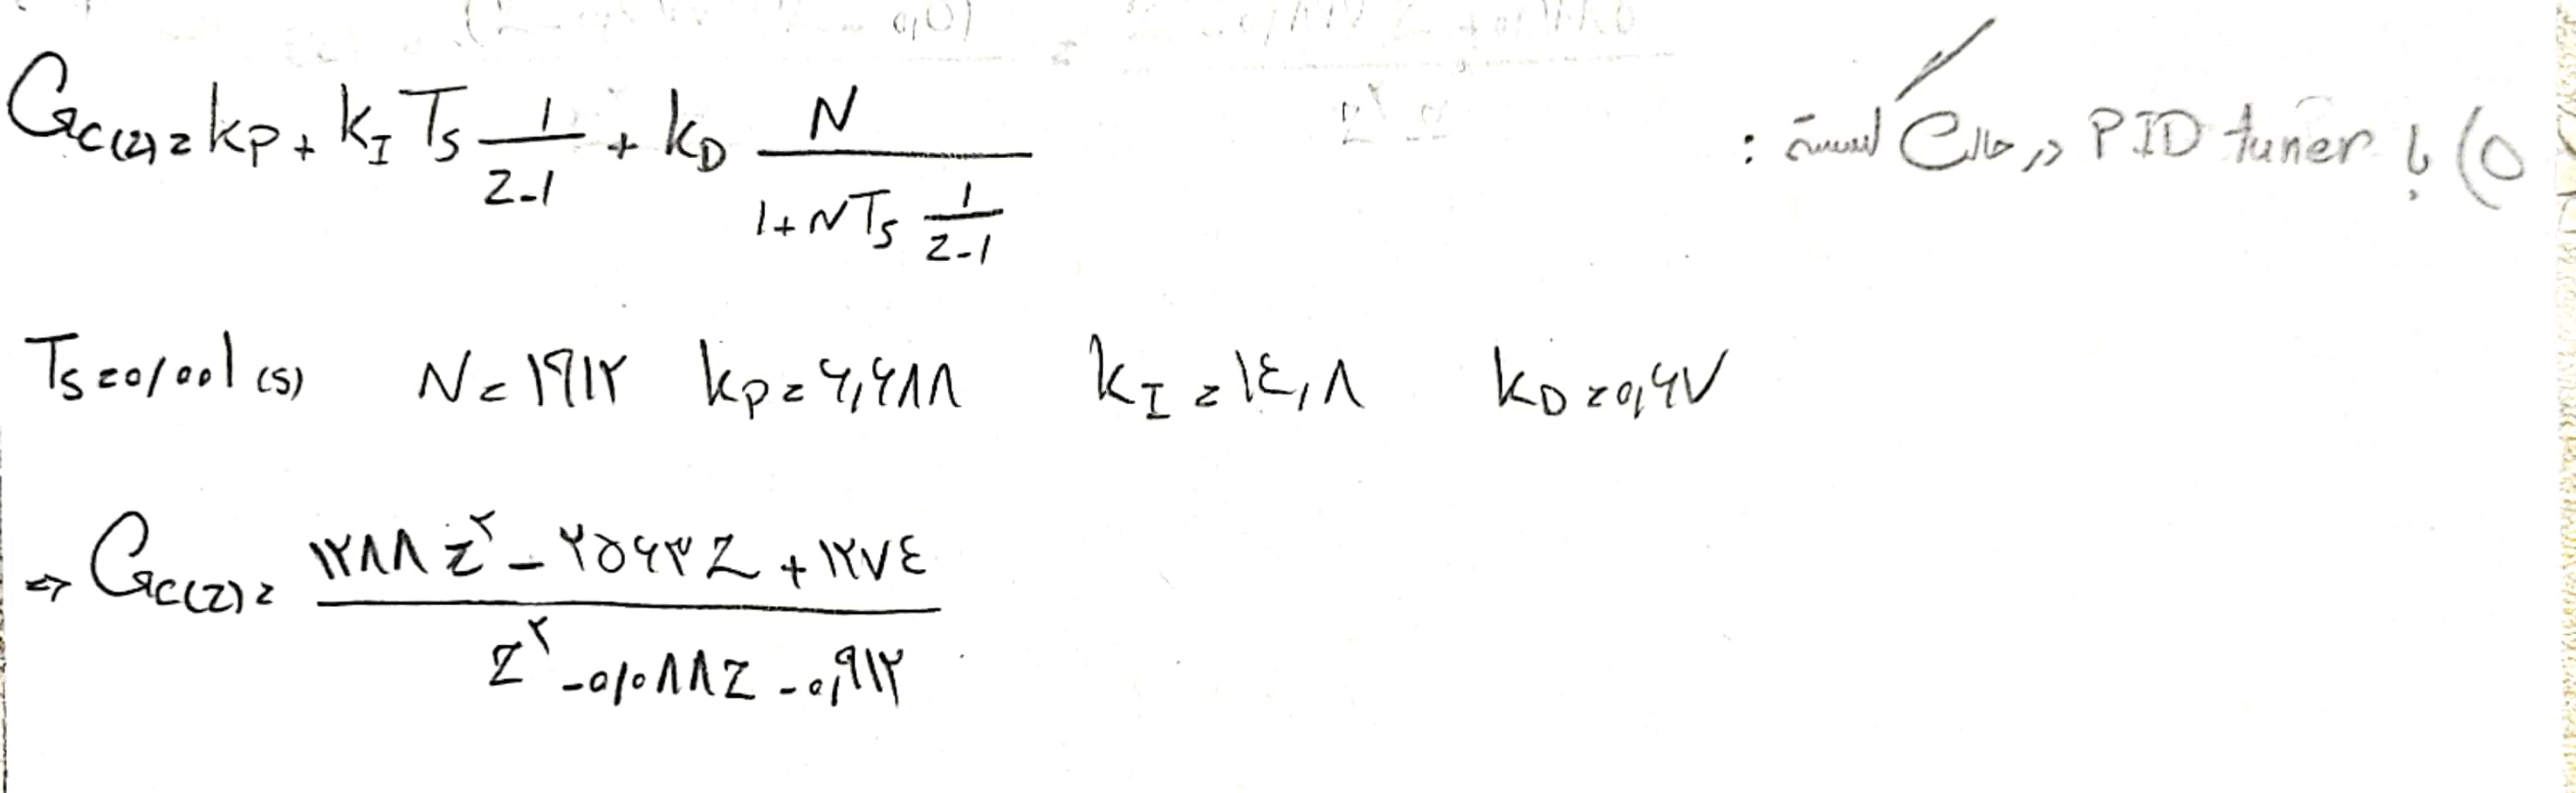 ۵) با PID tuner در حالت گسسته :
Gc(z) = kp + kI Ts 1/(z-1) + kD N/(1+NTs 1/(z-1))
Ts=۰/۰۰۱ (s) N=۱۹۱۲ kp=۶,۶۸۸ kI=۱٤,۸ kD=۰,۶۷
⇒ Gc(z) = (۱۲۸۸z^۲ - ۲۵۶۳z + ۱۲۷٤)/(z^۲ - ۰/۰۸۸z - ۰,۹۱۲)